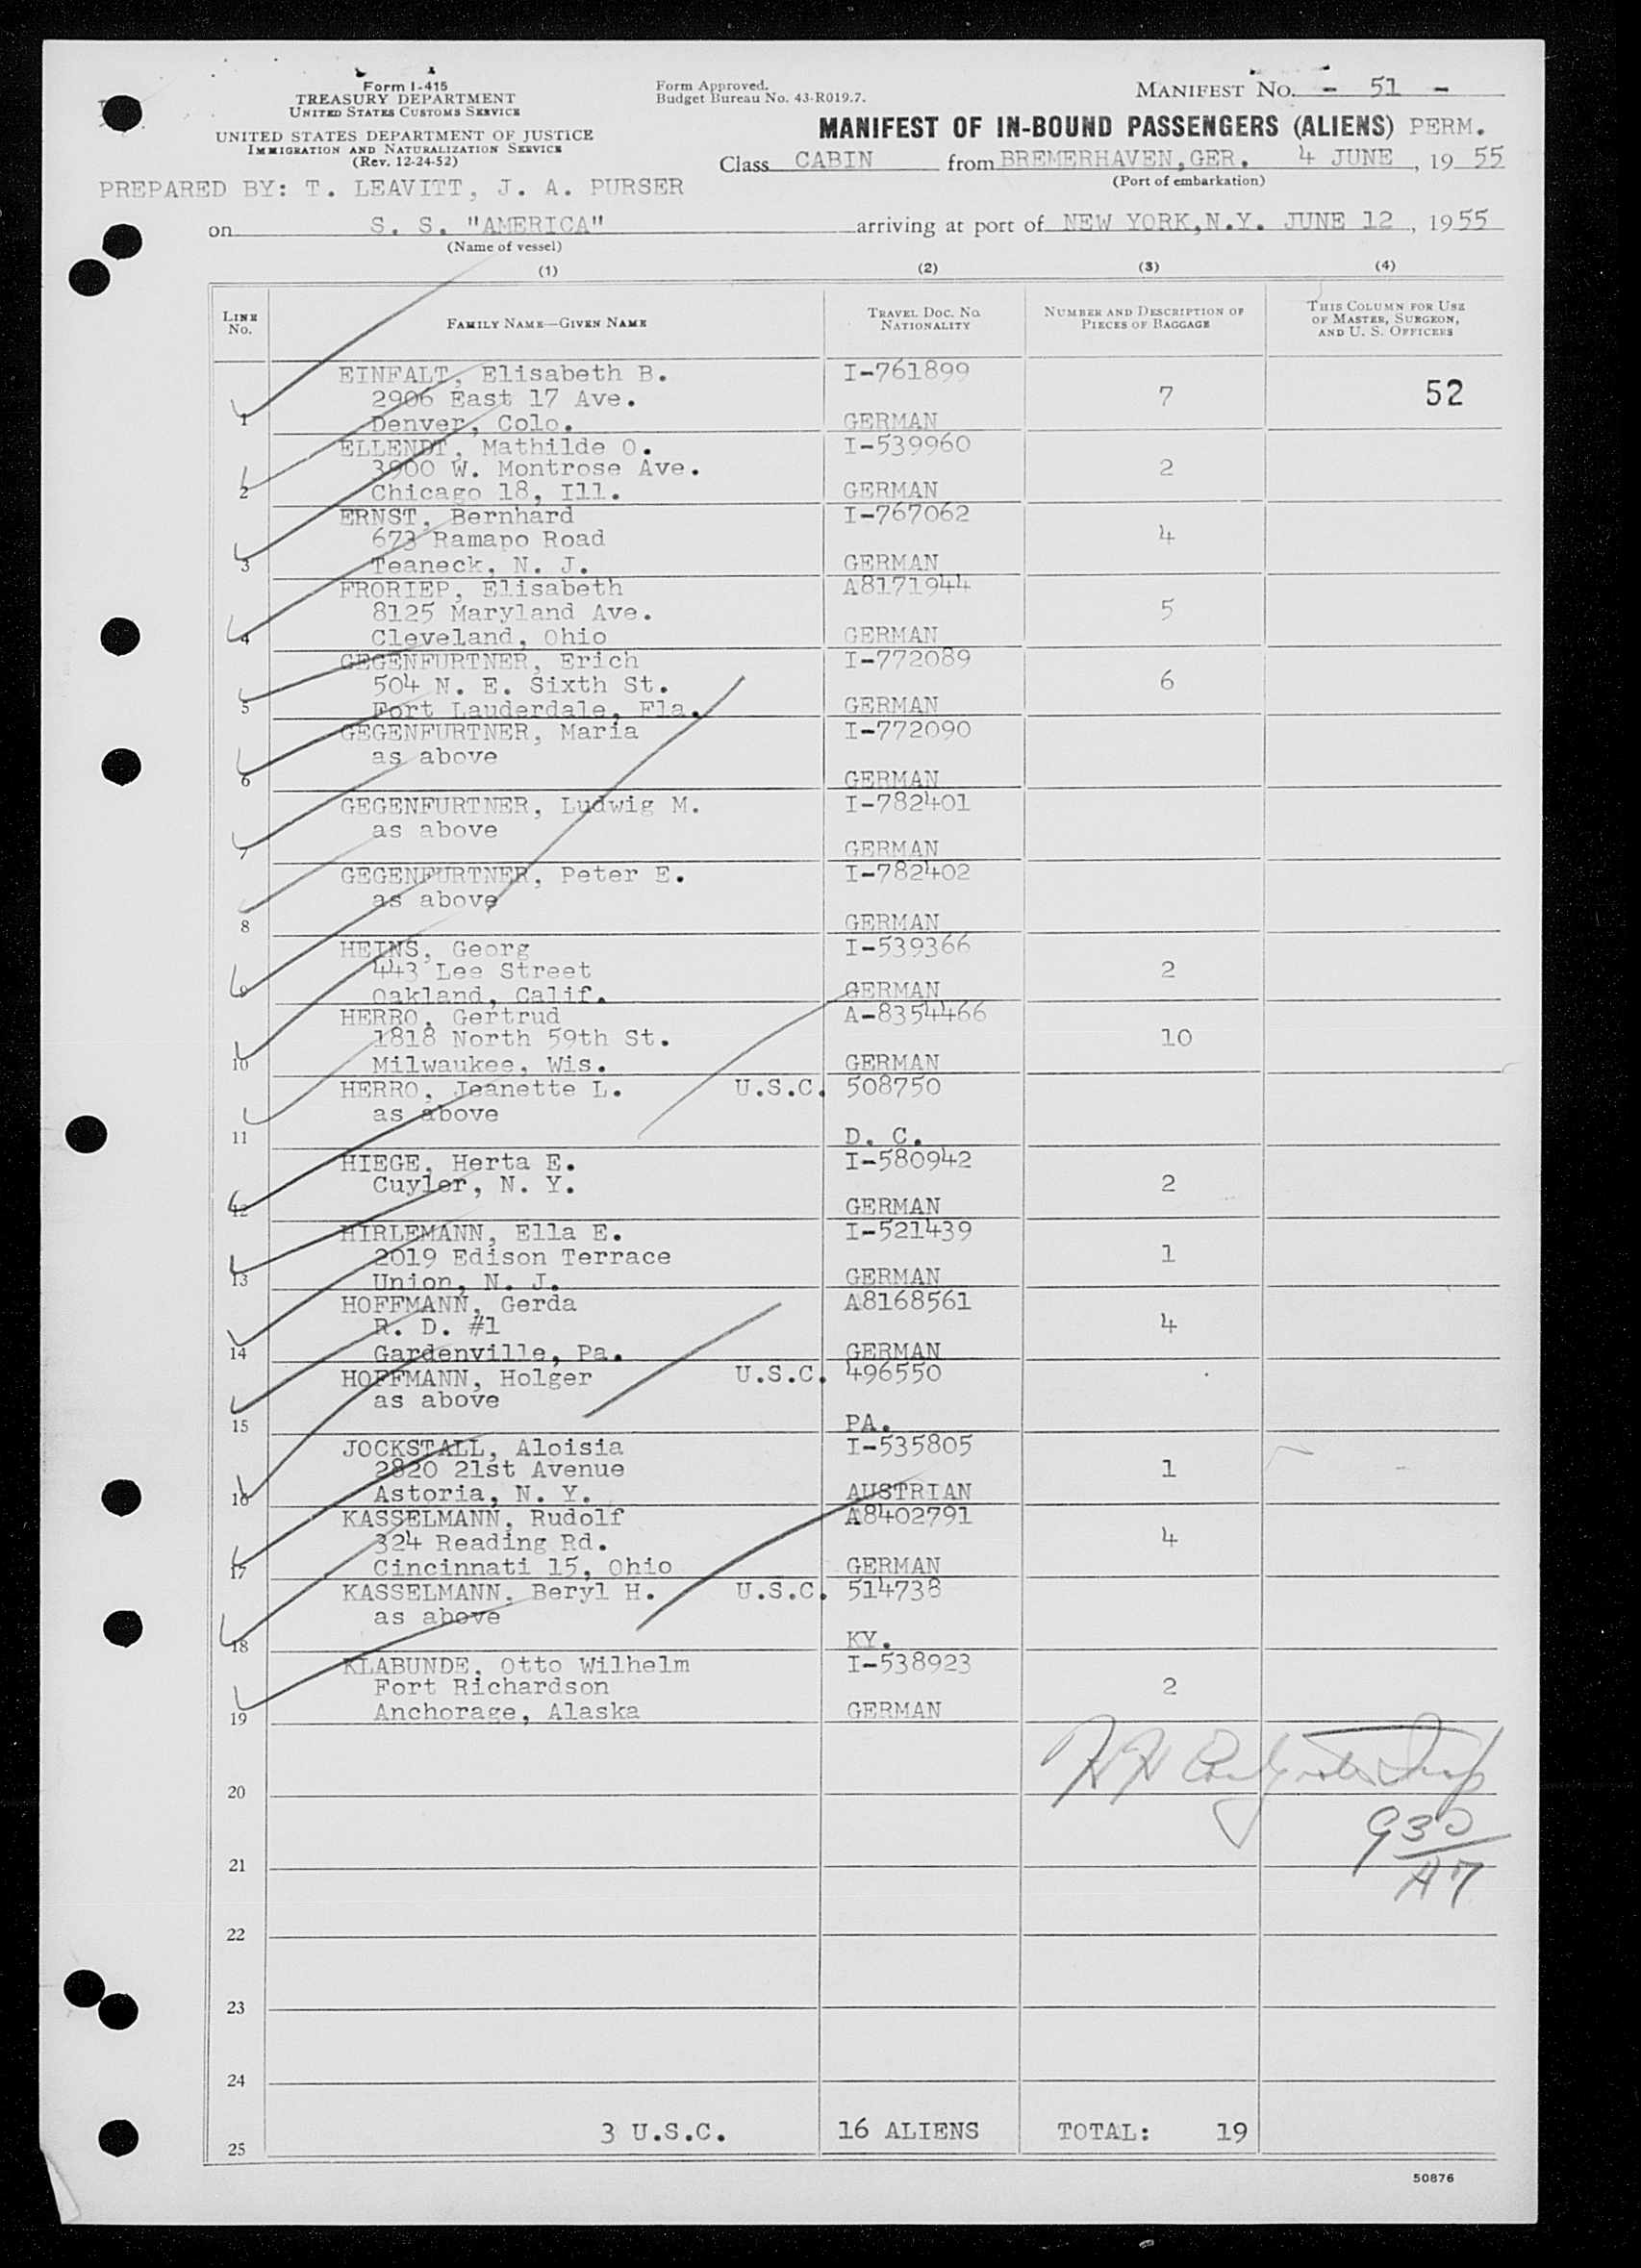 Form I-415
TREASURY DEPARTMENT
UNITED STATES CUSTOMS SERVICE
UNITED STATES DEPARTMENT OF JUSTICE
IMMIGRATION AND NATURALIZATION SERVICE
(Rev. 12-24-52)
Form Approved.
Budget Bureau No. 43-R019.7.
MANIFEST NO. - 51 -
MANIFEST OF IN-BOUND PASSENGERS (ALIENS) PERM.
Class CABIN from BREMERHAVEN, GER. 4 JUNE, 19 55
(Port of embarkation)
PREPARED BY: T. LEAVITT, J. A. PURSER
on S. S. "AMERICA" arriving at port of NEW YORK,N.Y. JUNE 12, 1955
(Name of vessel)
(1) (2) (3) (4)
LINE No. FAMILY NAME—GIVEN NAME TRAVEL DOC. No. NATIONALITY NUMBER AND DESCRIPTION OF PIECES OF BAGGAGE THIS COLUMN FOR USE OF MASTER, SURGEON, AND U. S. OFFICERS
EINFALT, Elisabeth B. I-761899
2906 East 17 Ave. 7 52
1 Denver, Colo. GERMAN
ELLENDT, Mathilde O. I-539960
3900 W. Montrose Ave. 2
2 Chicago 18, Ill. GERMAN
ERNST, Bernhard I-767062
673 Ramapo Road 4
3 Teaneck, N. J. GERMAN
FRORIEP, Elisabeth A8171944
8125 Maryland Ave. 5
4 Cleveland, Ohio GERMAN
GEGENFURTNER, Erich I-772089
504 N. E. Sixth St. 6
5 Fort Lauderdale, Fla. GERMAN
GEGENFURTNER, Maria I-772090
as above
6 GERMAN
GEGENFURTNER, Ludwig M. I-782401
as above
7 GERMAN
GEGENFURTNER, Peter E. I-782402
as above
8 GERMAN
HEINS, Georg I-539366
443 Lee Street 2
9 Oakland, Calif. GERMAN
HERRO, Gertrud A-8354466
1818 North 59th St. 10
10 Milwaukee, Wis. GERMAN
HERRO, Jeanette L. U.S.C. 508750
as above
11 D. C.
HIEGE, Herta E. I-580942
Cuyler, N. Y. 2
12 GERMAN
HIRLEMANN, Ella E. I-521439
2019 Edison Terrace 1
13 Union, N. J. GERMAN
HOFFMANN, Gerda A8168561
R. D. #1 4
14 Gardenville, Pa. GERMAN
HOFFMANN, Holger U.S.C. 496550
as above
15 PA.
JOCKSTALL, Aloisia I-535805
2820 21st Avenue 1
16 Astoria, N. Y. AUSTRIAN
KASSELMANN, Rudolf A8402791
324 Reading Rd. 4
17 Cincinnati 15, Ohio GERMAN
KASSELMANN, Beryl H. U.S.C. 514738
as above
18 KY.
KLABUNDE, Otto Wilhelm I-538923
Fort Richardson 2
19 Anchorage, Alaska GERMAN
20
930
21
22
23
24
3 U.S.C. 16 ALIENS TOTAL: 19
25
50876